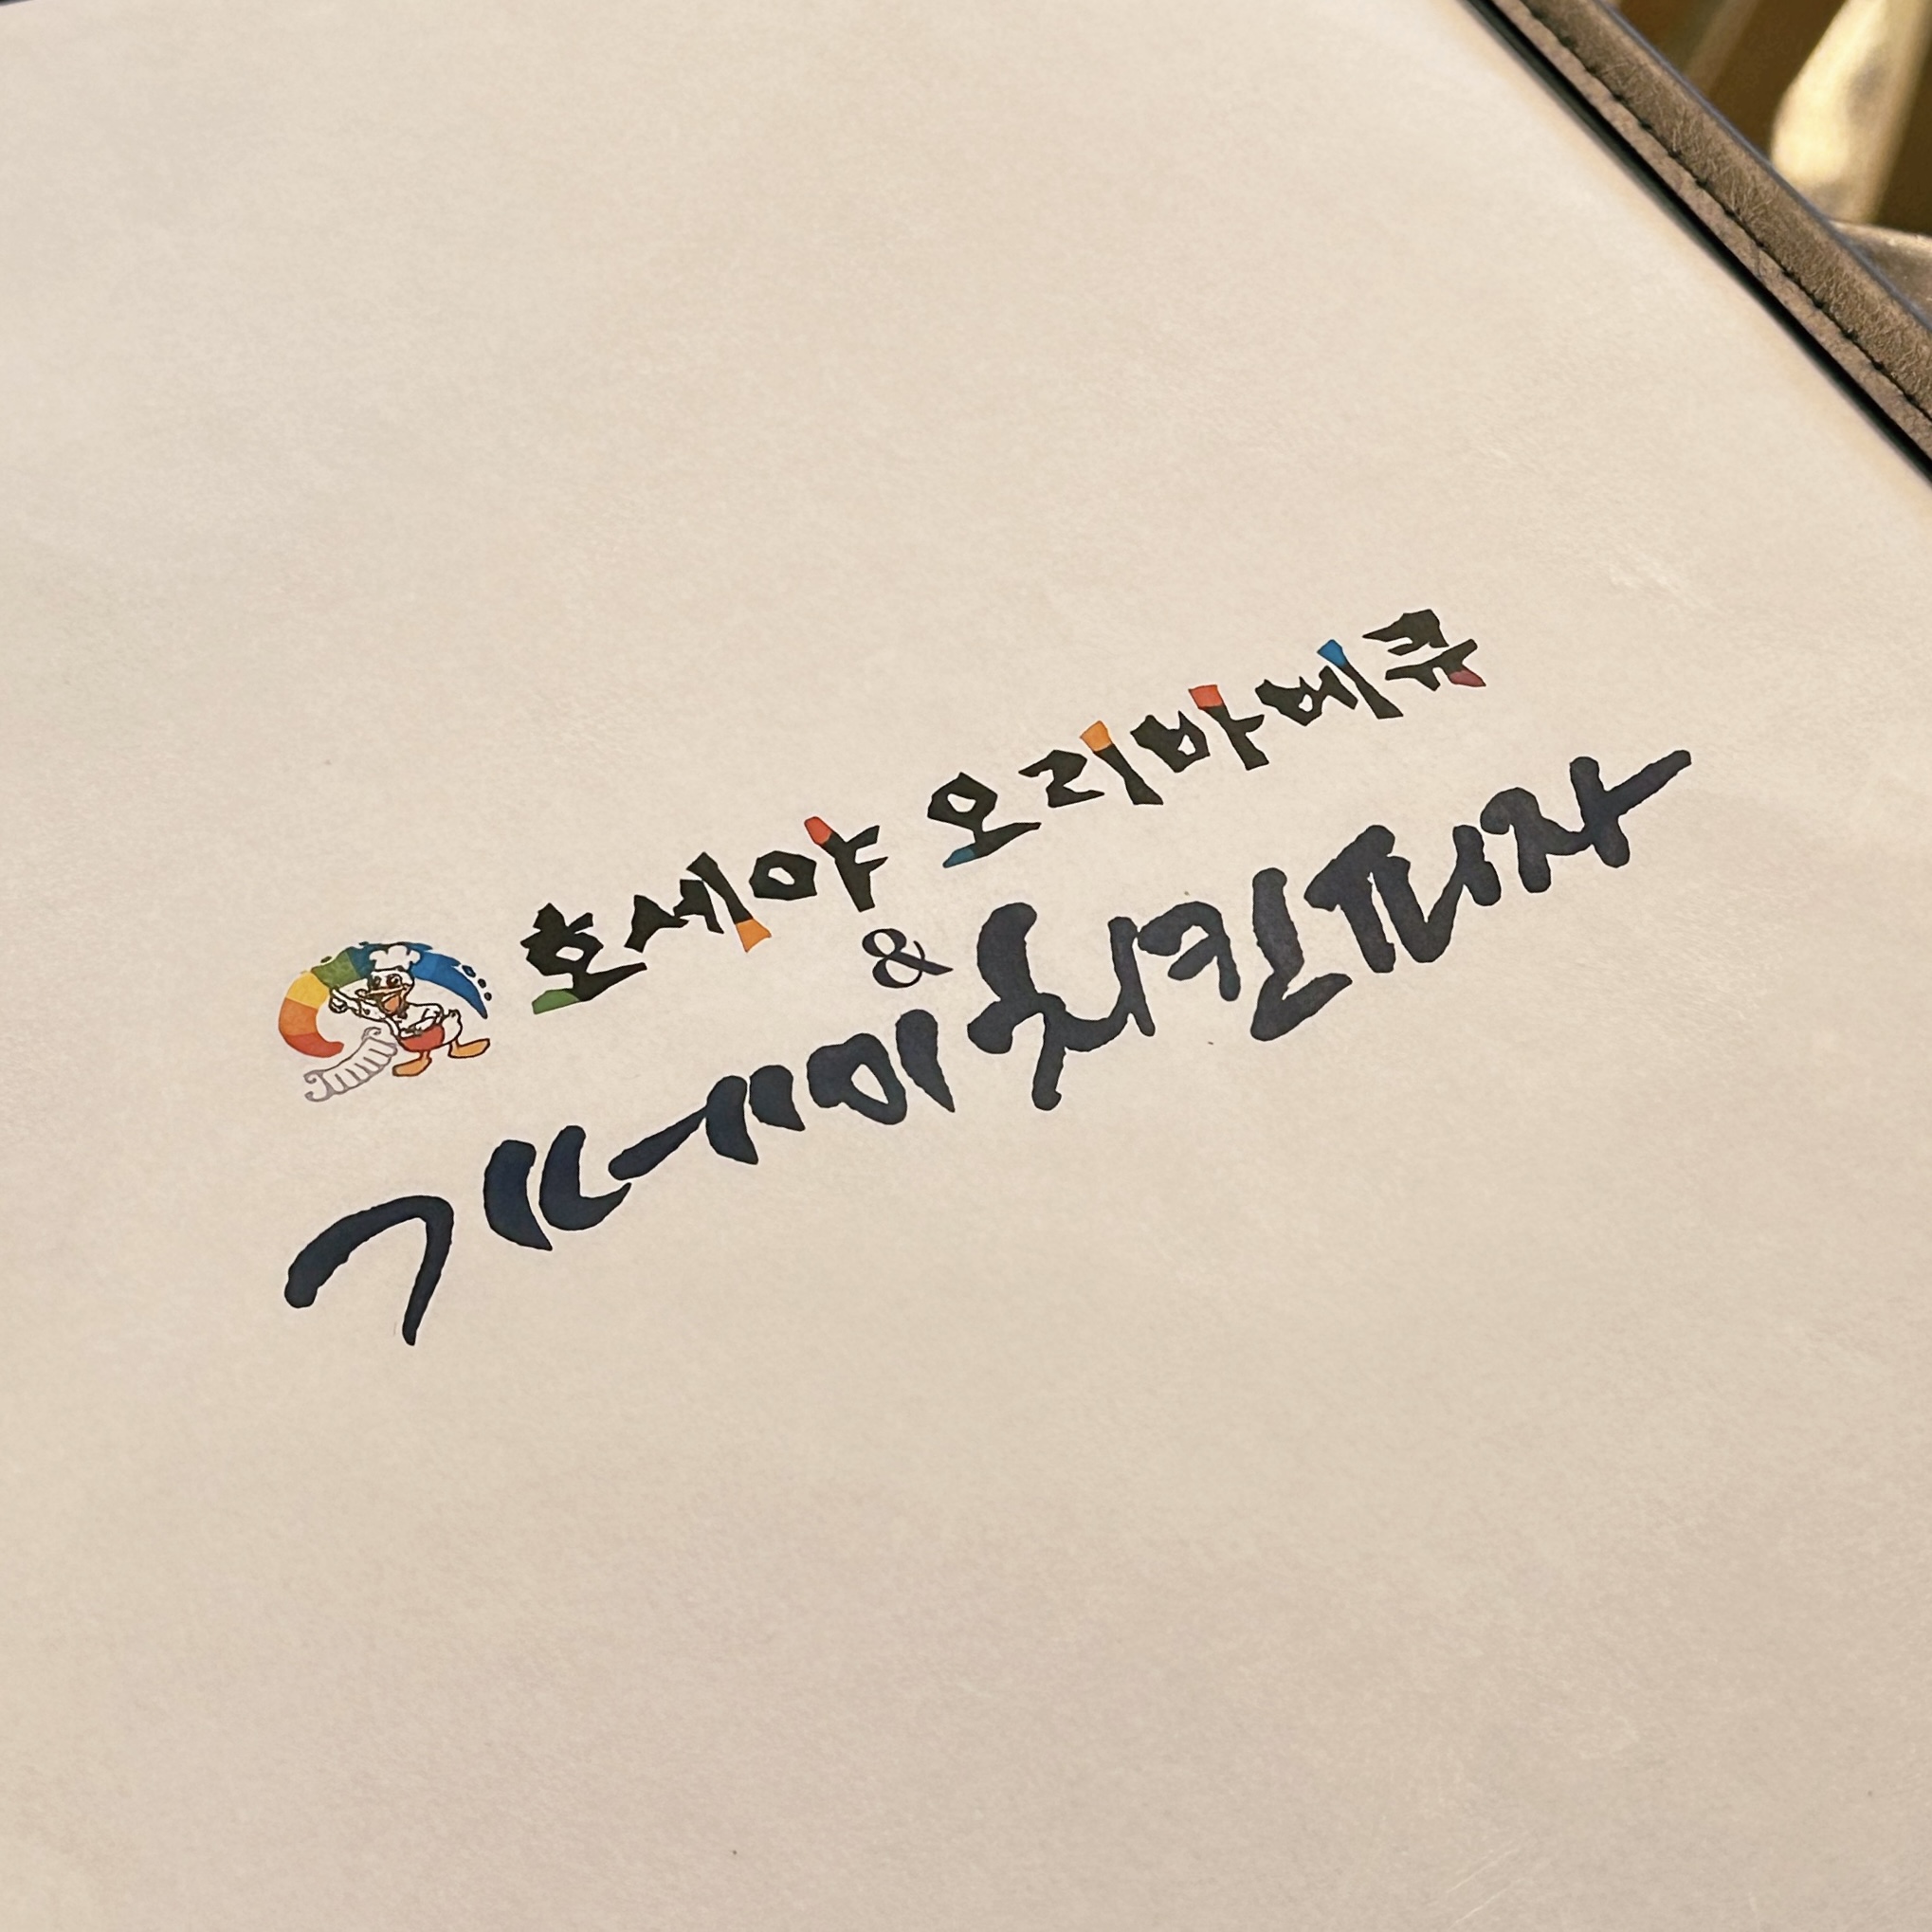 호세야 오리바베큐
&
기네미 치킨피자